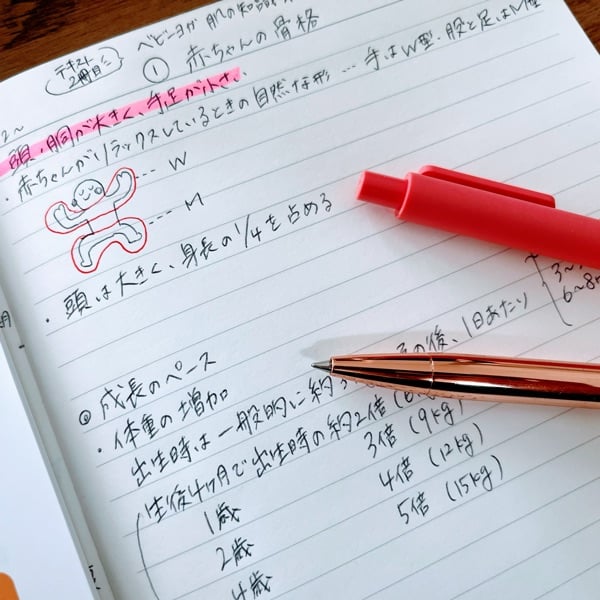 テキスト
2冊目
ベビーヨガ 肌の知識
① 赤ちゃんの骨格
2〜
頭、胴が大きく、手足が小さい
・赤ちゃんがリラックスしているときの自然な形… 手はW型・股と足はM型
W
M
・頭は大きく、身長の1/4を占める
◎ 成長のペース
・体重の増加
出生時は一般的に約 その後、1日あたり
3〜
6〜8
生後4ヶ月で出生時の約2倍
1歳 3倍 (9kg)
2歳 4倍 (12kg)
4歳 5倍 (15kg)
月